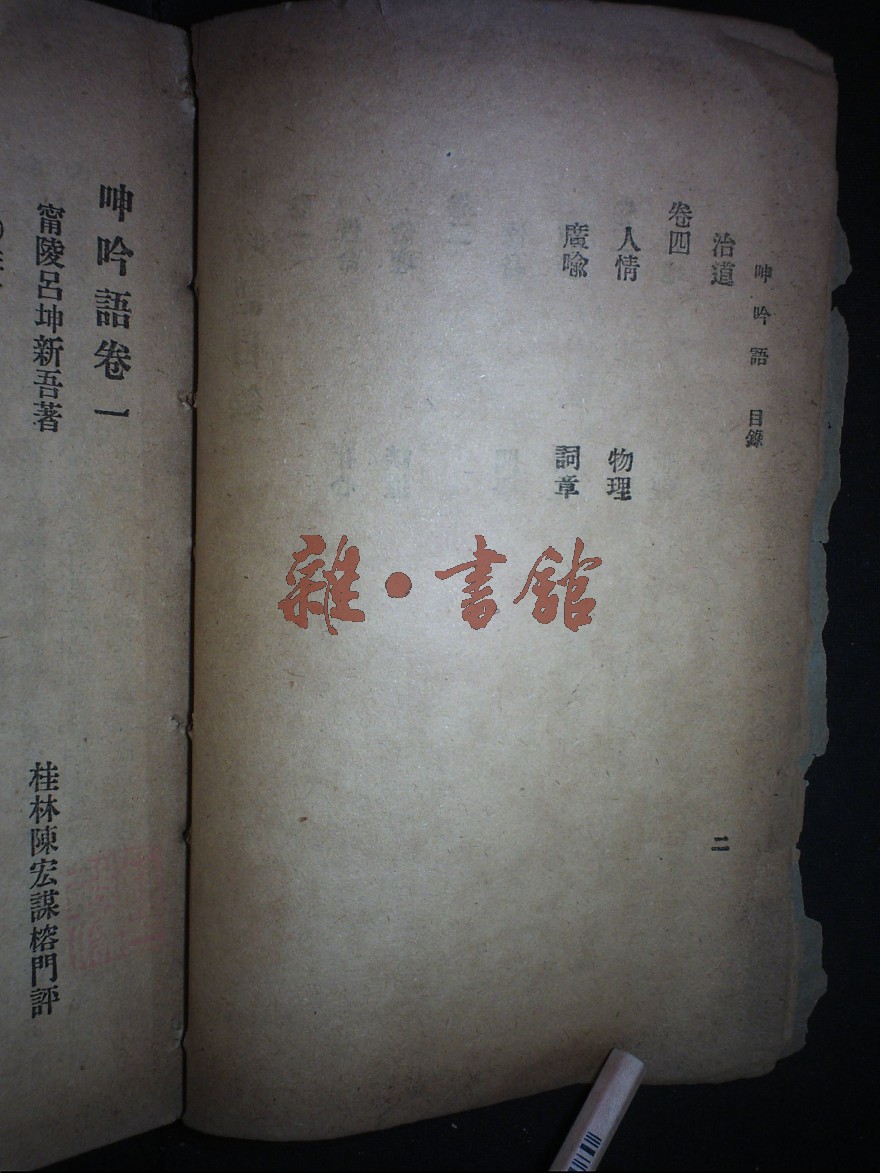 呻吟語 目錄
二
治道
卷四
人情 物理
廣喻 詞章
雜·書館
呻吟語卷一
甯陵呂坤新吾著 桂林陳宏謀榕門評